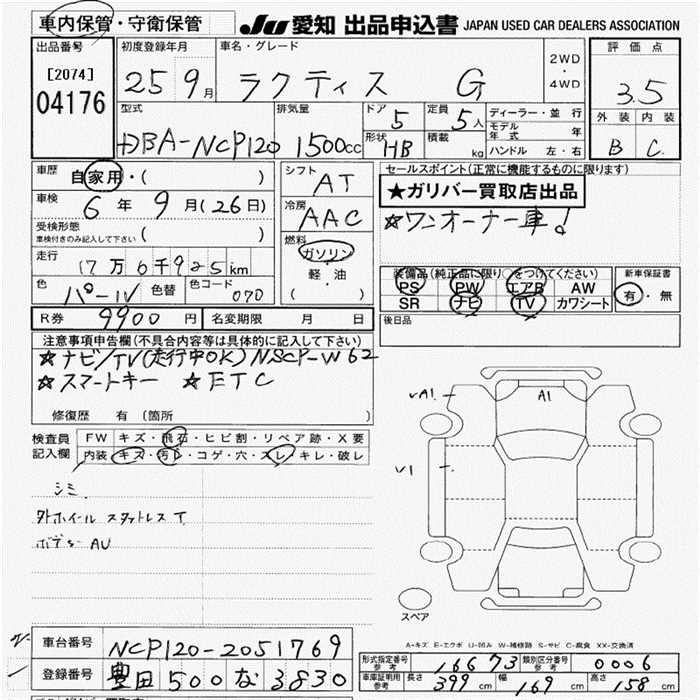 車内保管・守衛保管
JU 愛知 出品申込書 JAPAN USED CAR DEALERS ASSOCIATION
出品番号
[2074]
04176
初度登録年月
25 9月
車名・グレード
ラクティス G
2WD
・
4WD
評価点
3.5
外装 内装
B C
型式
DBA-NCP120
排気量
1500cc
ドア
5
定員
5人
形状
HB
積載
kg
ディーラー・並行
モデル年式 年
ハンドル 左・右
車歴
自家用・( )
車検
6年 9月(26日)
受検形態
車検付きのみ記入して下さい ( )
走行
17万6千925km
色
パール
色替
色コード
070
シフト
AT
冷房
AAC
燃料
ガソリン
・
軽・油
( )
セールスポイント(正常に機能するものに限ります)
★ガリバー買取店出品
☆ワンオーナー車!
装備品(純正品に限り○をつけてください)
PS PW エアB AW
SR ナビ TV カワシート
新車保証書
有・無
後日品
R券 9900円
名変期限 月 日
注意事項申告欄(不具合内容等は具体的に記入して下さい)
☆ナビ/TV(走行中OK) NSCP-W62
☆スマートキー ☆ETC
修復歴 有(箇所 )
検査員
記入欄
FW キズ・飛石・ヒビ割・リペア跡・X要
内装 キズ・汚レ・コゲ・穴・スレ・キレ・破レ
シミ
外ホイール スタットレス T
ボデー AU
VA1.
A1
V1
スペア
A-キズ E-エクボ U-凹み W-補修跡 S-サビ C-腐食 XX-交換済
車台番号 NCP120-2051769
登録番号 豊田 500 な 3830
形式指定番号
参考
16673
類別区分番号
参考
0006
車庫証明用
参考
長さ 399cm 幅 169cm 高さ 158cm